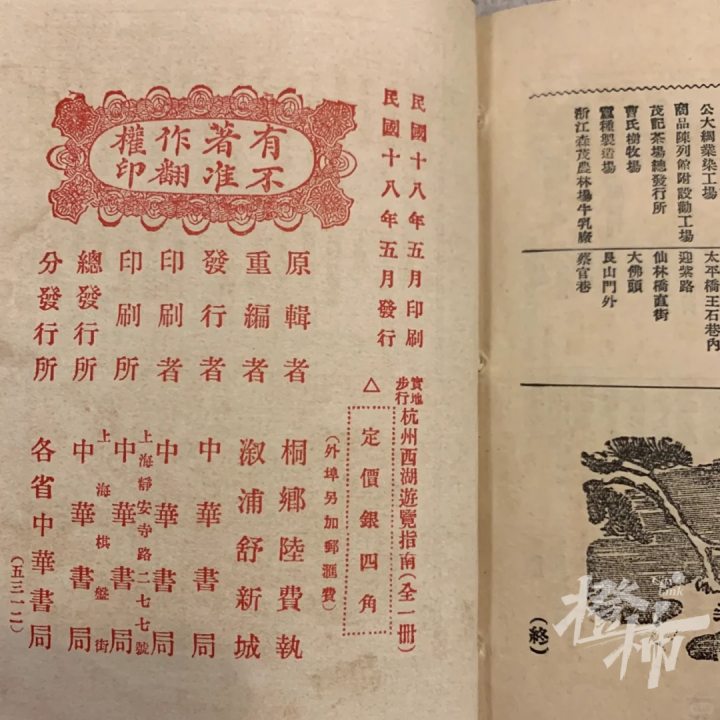 有著作權
不准翻印
民國十八年五月印刷
民國十八年五月發行
實地步行杭州西湖遊覽指南(全一冊)
△定價銀四角
(外埠另加郵滙費)
原輯者 桐鄉陸費執
重編者 溆浦舒新城
發行者 中華書局
印刷者 中華書局
上海靜安寺路二七七號
印刷所 中華書局
上海棋盤街
總發行所 中華書局
分發行所 各省中華書局
(五三一二)
公大綢業染工場 太平橋王石巷內
商品陳列館附設勸工場 迎紫路
茂記茶場總發行所 仙林橋直街
曹氏樹牧場 大佛頭
蠶種製造場 艮山門外
浙江森茂農林場牛乳廠 蔡官巷
(終)
橙柿